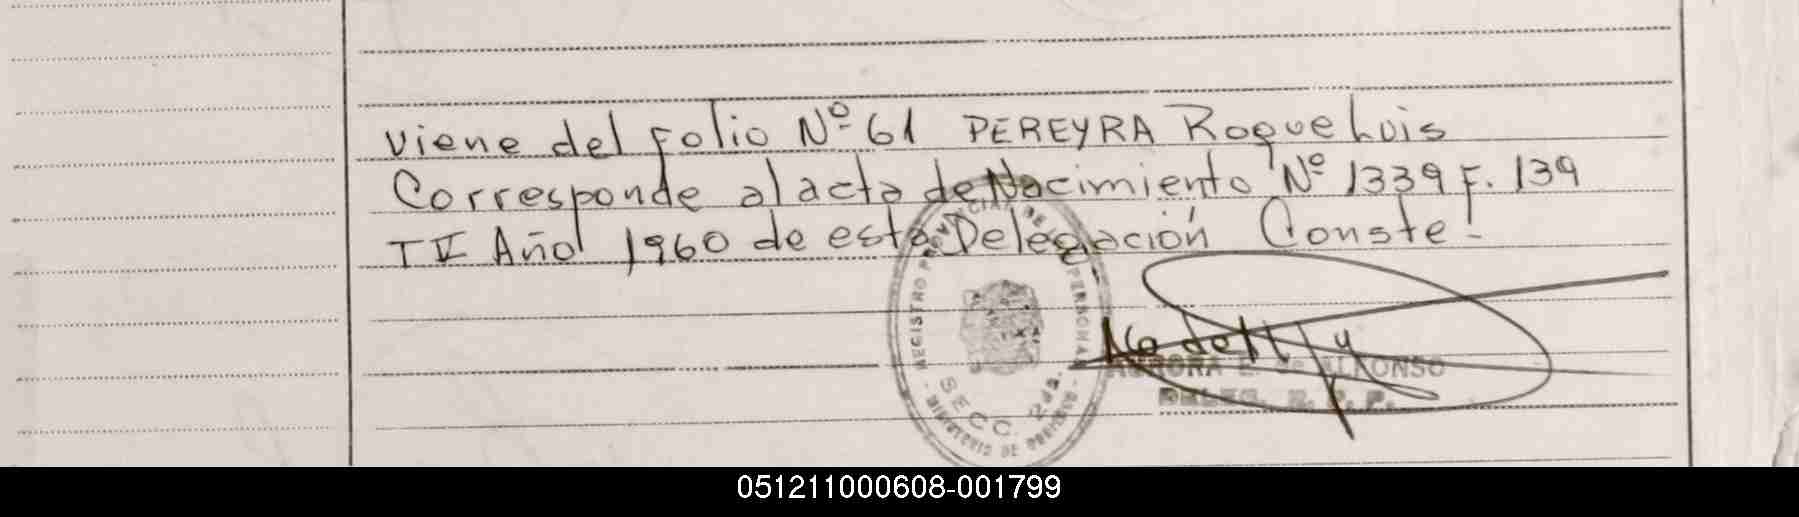 Viene del Folio Nº 61 PEREYRA Roque Luis
Corresponde al acta de Nacimiento Nº 1339 F. 139
T V Año 1960 de esta Delegación Conste.-
REGISTRO PROVINCIAL DE
PERSONAS
SECC. 2da.
MINISTERIO DE GOBIERNO
AURORA E. de ALFONSO
DELEG. R. P. P.
051211000608-001799